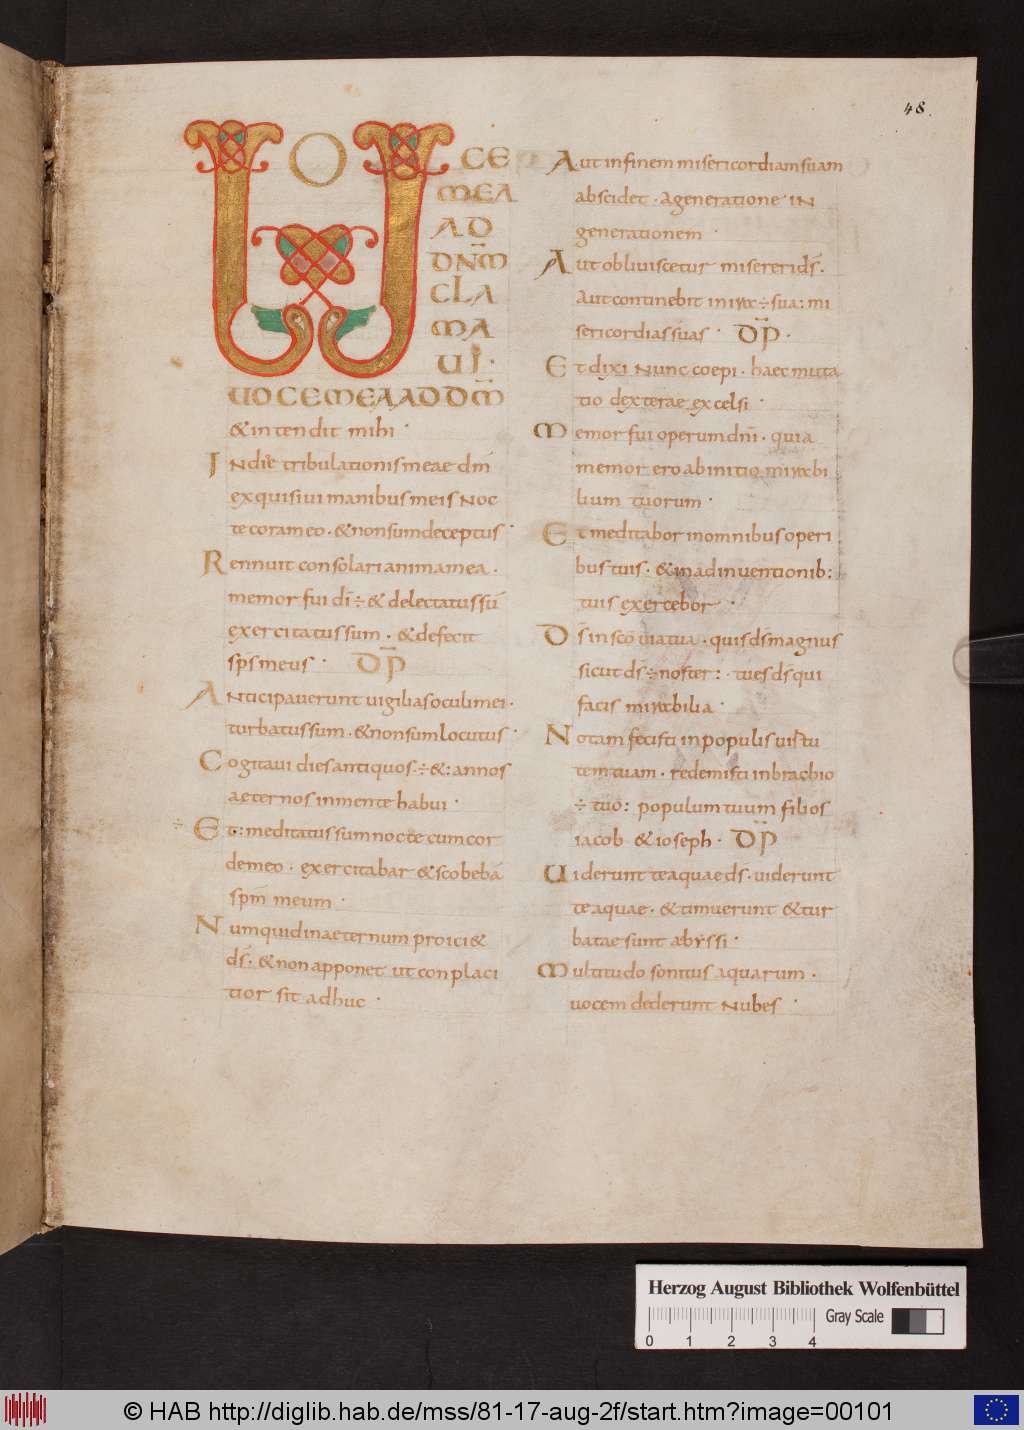 48.
UOCE
MEA
AD
DÑM
CLA
MA
UI·
UOCEMEAADDM̄
&intendit mihi ·
INdie tribulationis meae dm̄
exquisiui manibus meis Noc
te coram eo · & non sum deceptus ·
Rennuit consolari anima mea ·
memor fui dī ÷ & delectatus sū
exercitatus sum · & defecit
sps̄ meus · D̄P
ANticipauerunt uigilias oculi mei ·
turbatus sum · & non sum locutus ·
Cogitaui dies antiquos · ÷ &: annos
aeternos in mente habui ·
÷ Et: meditatus sum nocte cum cor
de meo · exercitabar & scobebā
spm̄ meum ·
Numquid in aeternum proici&
ds̄ · & non apponet ut conplaci
tior sit adhuc ·
Aut in finem misericordiam suam
abscidet · A generatione IN
generationem ·
Aut obliuiscetur misereri ds̄ ·
Aut continebit in ira ÷ sua: mi
sericordias suas · D̄P ·
Et dixi Nunc coepi · haec muta
tio dexterae excelsi ·
Memor fui operum dnī · quia
memor ero ab initio mirabi
lium tuorum ·
Et meditabor in omnibus operi
bus tuis · & in adinuentionib:
tuis exercebor ·
Ds̄ in scō uia tua · quis ds̄ magnus
sicut ds̄ ÷ noster: · tu es ds̄ qui
facis mirabilia ·
Notam fecisti in populis uirtu
tem tuam · redemisti in brachio
÷ tuo: populum tuum filios
iacob & ioseph · D̄P
Uiderunt te aquae ds̄ · uiderunt
te aquae · & timuerunt & tur
batae sunt abyssi ·
Multitudo sonitus aquarum ·
uocem dederunt Nubes ·
Herzog August Bibliothek Wolfenbüttel
Gray Scale
0 1 2 3 4
© HAB http://diglib.hab.de/mss/81-17-aug-2f/start.htm?image=00101